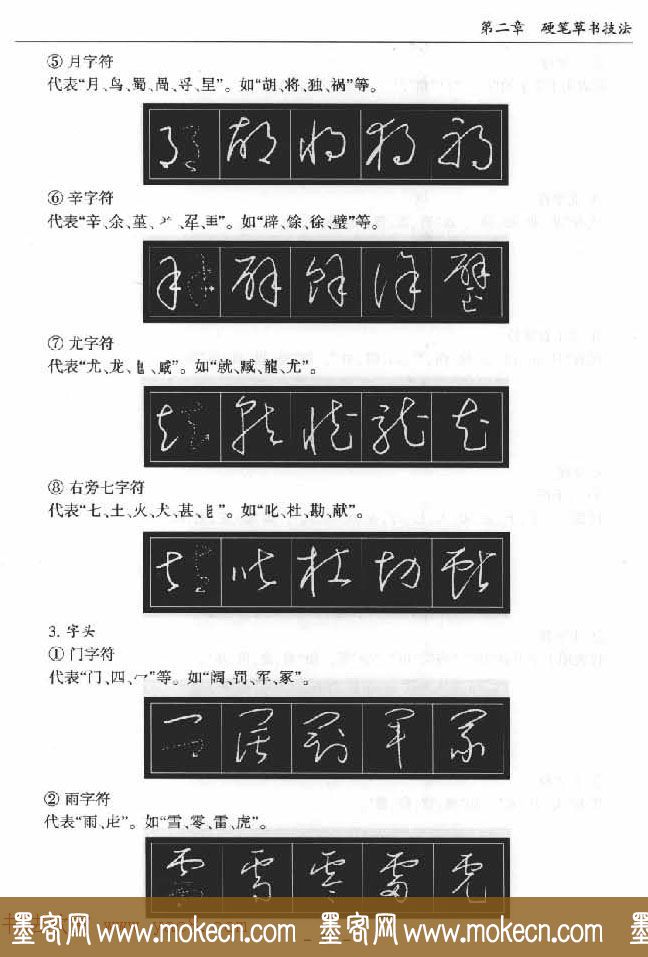 第二章　硬笔草书技法
⑤ 月字符
代表“月、鸟、蜀、咼、寽、里”。如“胡、将、独、祸”等。
⑥ 辛字符
代表“辛、余、堇、
”。如“辟、馀、徐、璧”等。
⑦ 尤字符
代表“尤、龙、
、臧”。如“就、臧、龍、尤”。
⑧ 右旁七字符
代表“七、土、火、犬、甚、
”。如“叱、杜、勘、献”。
3. 字头
① 门字符
代表“门、四、冖”等。如“阔、罚、军、冢”。
② 雨字符
代表“雨、虍”。如“雪、零、雷、虎”。
墨客网 www.mokecn.com 墨客网 www.mokecn.com 墨